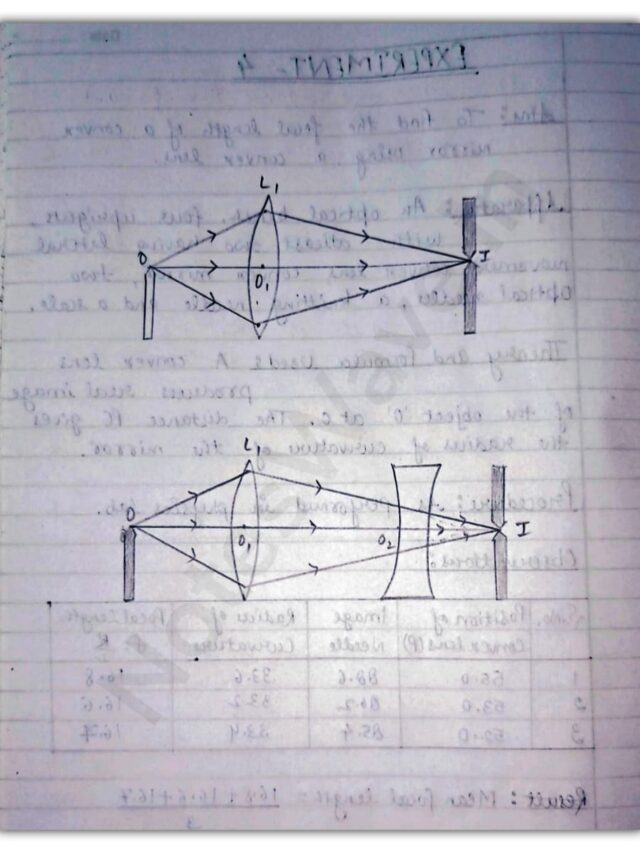 EXPERIMENT-4
Aim: To find the focal length of a convex
mirror using a convex lens.
L1
Apparatus: An optical bench, four uprights
with
O
O1
I
optical needles, a knitting needle and a scale.
Theory and formula used: A convex lens
produces real image
of the object 'O' at C. The distance PC gives
the radius of curvature of the mirror.
L1
Procedure: As performed in physics lab.
O
O1
O2
I
Observations:
S.No. Position of Image Radius of Focal length
convex lens (P) Needle Curvature R
1 55.0 88.6 33.6 16.8
2 53.0 86.2 33.2 16.6
3 52.0 85.4 33.4 16.7
Result: Mean focal length = 16.8+16.6+16.7
3
NotesWave